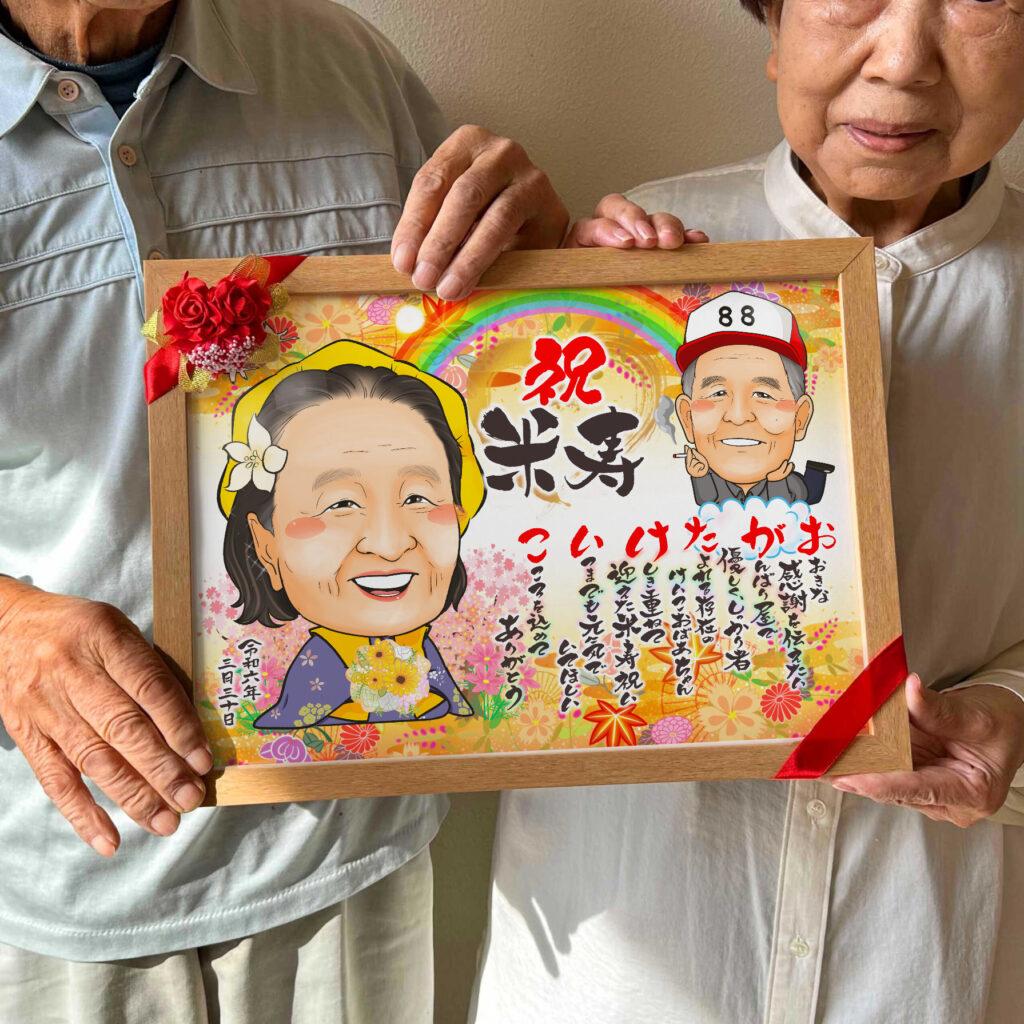 88
祝
米寿
おがたけいこ
おきな
感謝を伝えたい
んばり屋で
優しくしっかり者
よれる存在の
けいこおばあちゃん
しき重ねて
迎えた米寿祝い
つまでも元気で
いてほしい
ころを込めて
ありがとう
令和六年
三月三十日